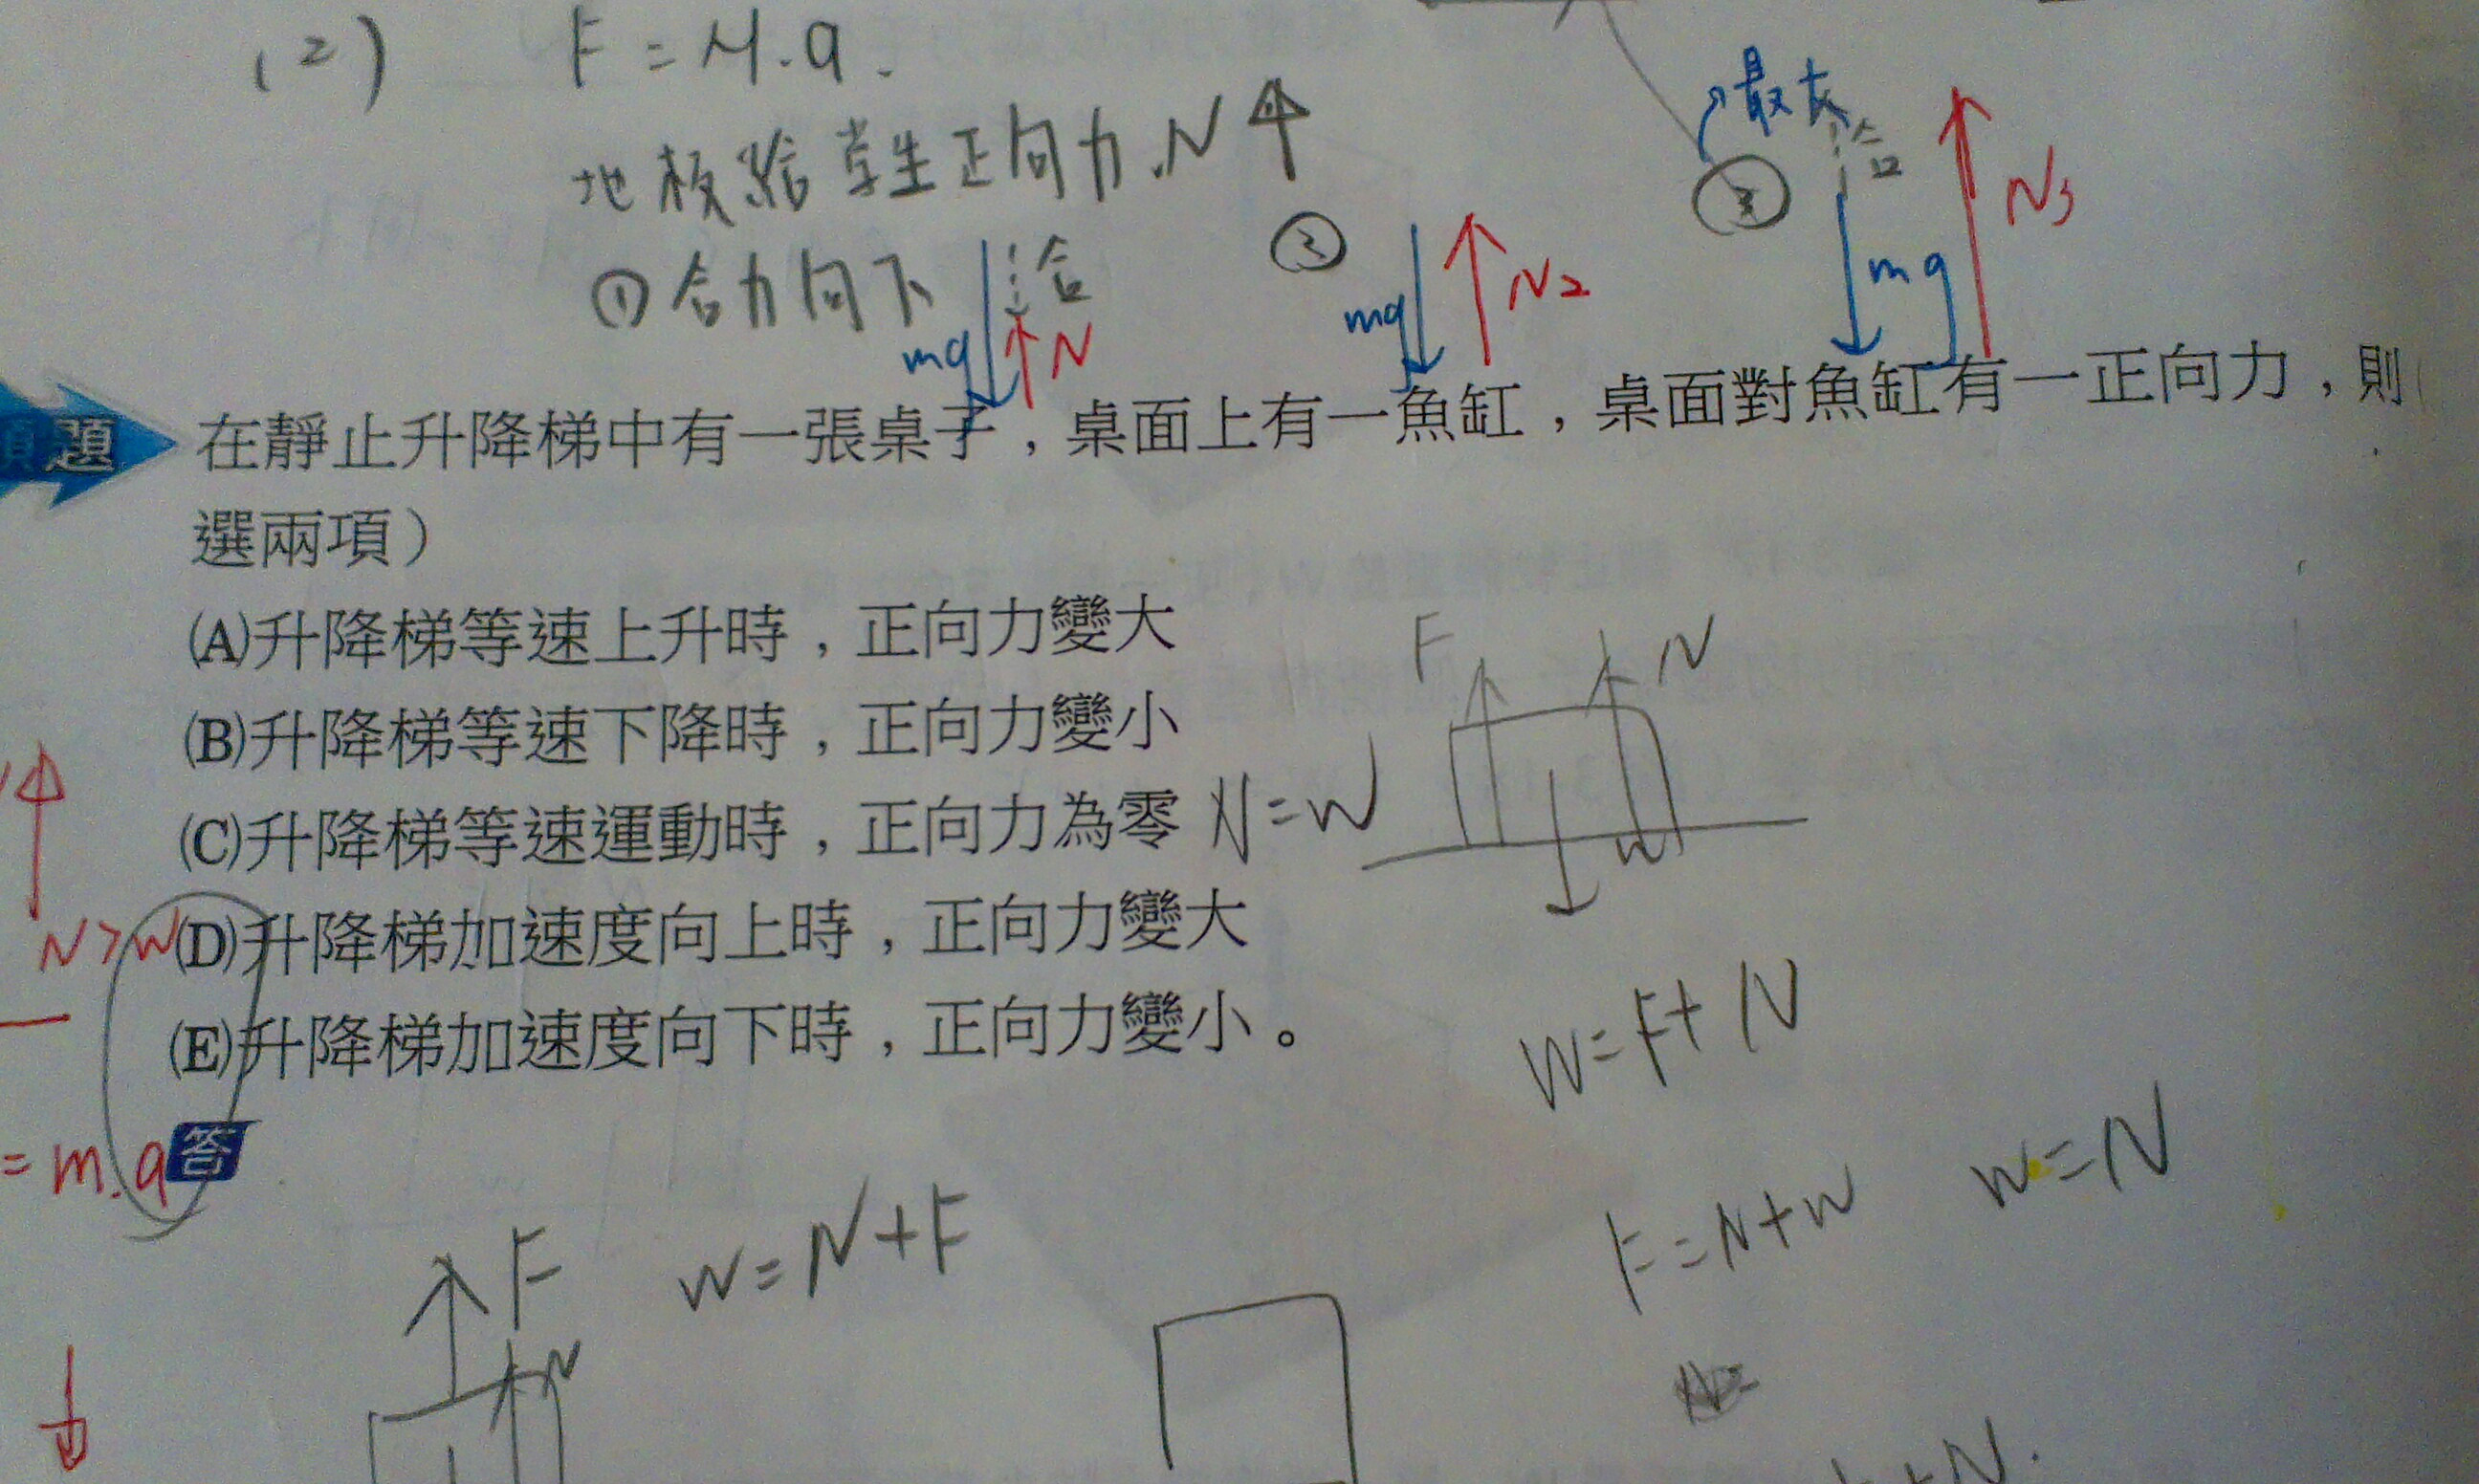 (2) F = M.a.
地板給學生正向力.N
最大
合
N3
mg
① 合力向下
合
mg
N
②
mg
N2
題
在靜止升降梯中有一張桌子，桌面上有一魚缸，桌面對魚缸有一正向力，則
選兩項）
(A)升降梯等速上升時，正向力變大
F
N
(B)升降梯等速下降時，正向力變小
(C)升降梯等速運動時，正向力為零
N=W
W
N>W
(D)升降梯加速度向上時，正向力變大
(E)升降梯加速度向下時，正向力變小。
W=F+N
=m.a
答
W=N
F=N+W
W=N+F
F
N
N=
+N.